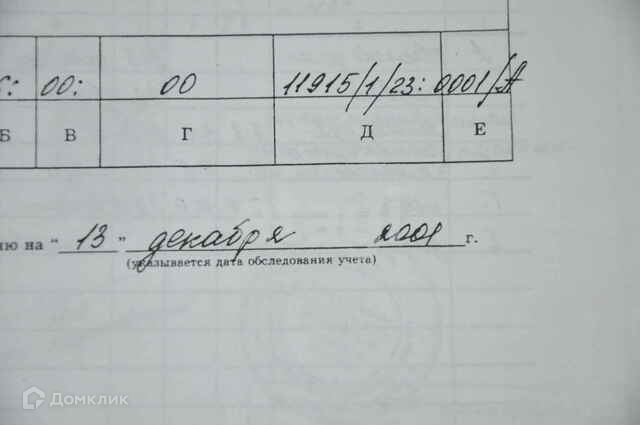 00: 00 11915/1/23: 0001/А
Б В Г Д Е
ю на "13" декабря 2001 г.
(указывается дата обследования учета)
Домклик